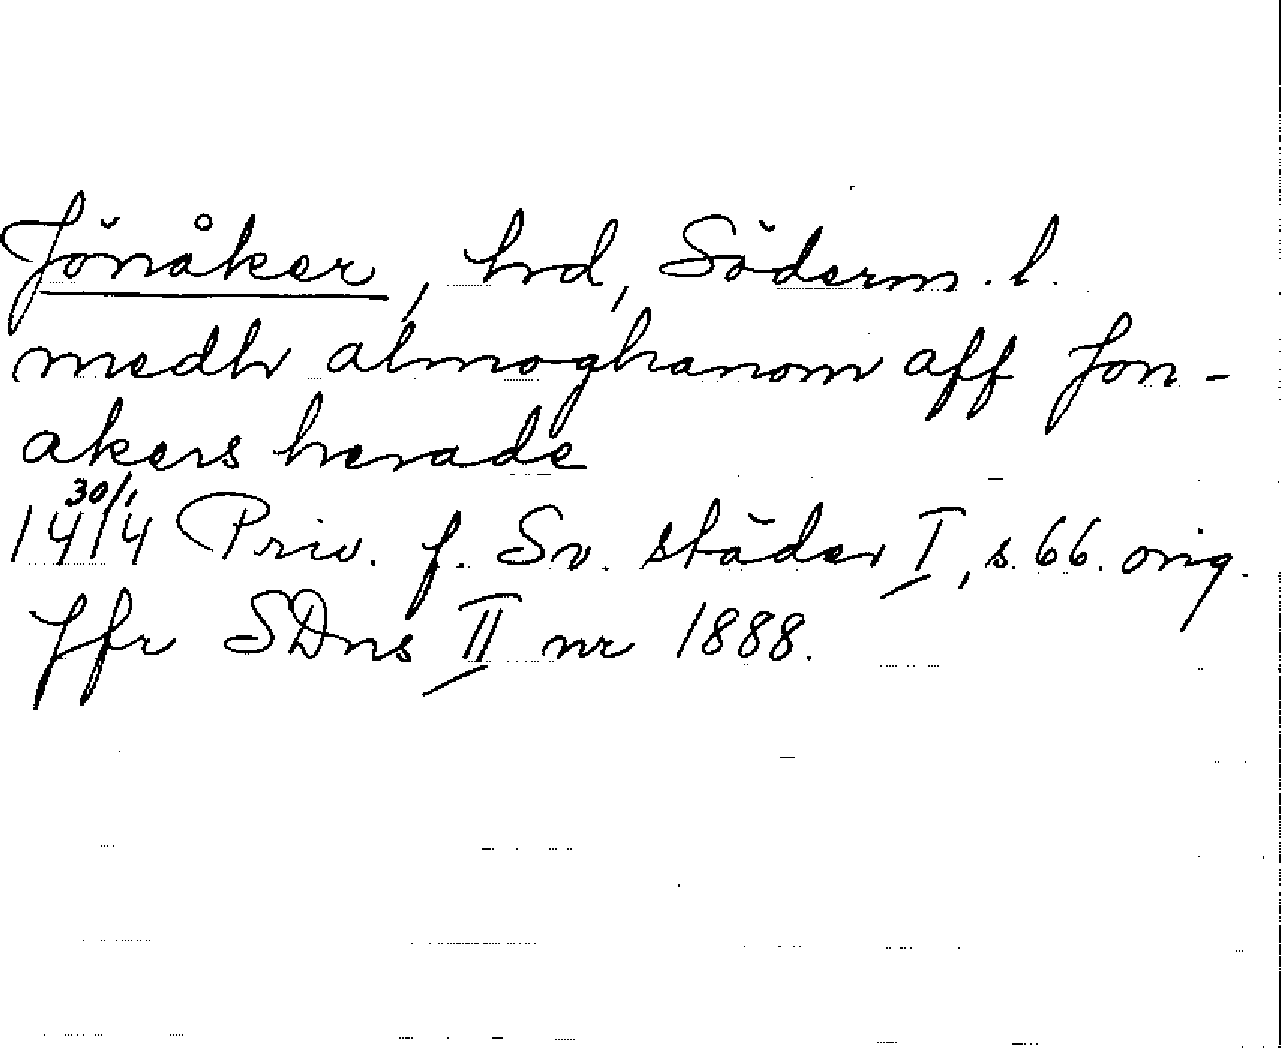 Jönåker, hd, Söderm. l.
medh almoghanom aff Jon-
akers herade
1414 30/1 Priv. f. Sv. städer I, s. 66. orig.
Jfr SDns II nr 1888.